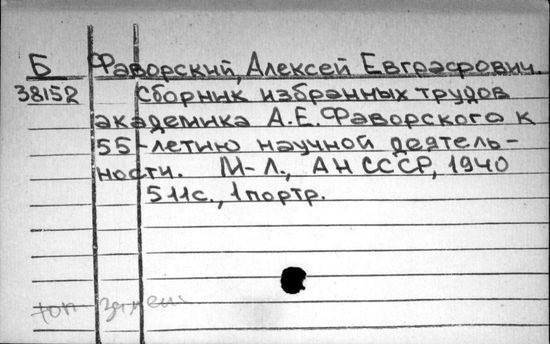 Б Фаворский, Алексей Евграфович.
38152 Сборник избранных трудов
академика А.Е.Фаворского к
55-летию научной деятель-
ности. М-Л., АН СССР, 1940
511с., 1 портр.